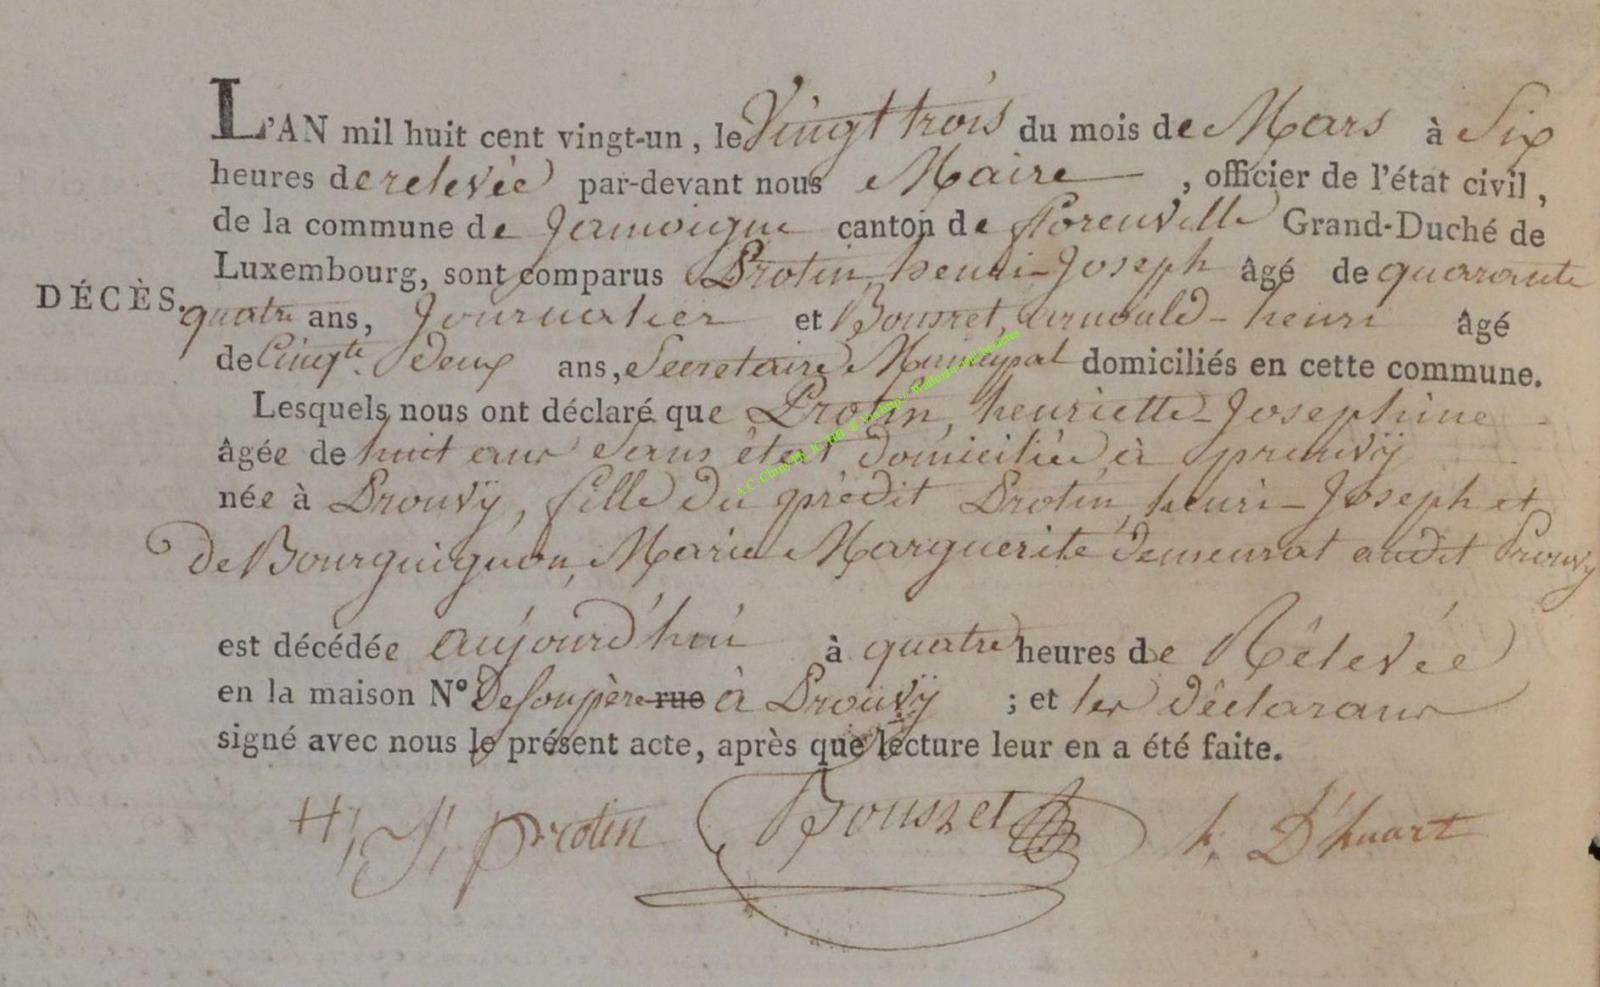 L'AN mil huit cent vingt-un, le Vingt trois du mois de Mars à Six
heures de relevée par-devant nous Maire, officier de l'état civil,
de la commune de Jamoigne canton de florenville Grand-Duché de
Luxembourg, sont comparus Protin, henri-Joseph âgé de quarante
DÉCÈS.
quatre ans, Journalier et Bousret, arnould-henri âgé
de Cinqte. deux ans, Secretaire Municipal domiciliés en cette commune.
Lesquels nous ont déclaré que Protin, henriette-Josephine
âgée de huit ans sans état, domiciliée à prouvÿ
née à Prouvÿ, fille du prédit Protin, henri-Joseph et
de Bourguignon, Marie Marguerite demeurat audit Prouvy
est décédée aujourd'hui à quatre heures de Rélevée
en la maison N° de son père rue à Prouvÿ ; et les déclarans
signé avec nous le présent acte, après que lecture leur en a été faite.
H, J, protin Bousret h. D'huart